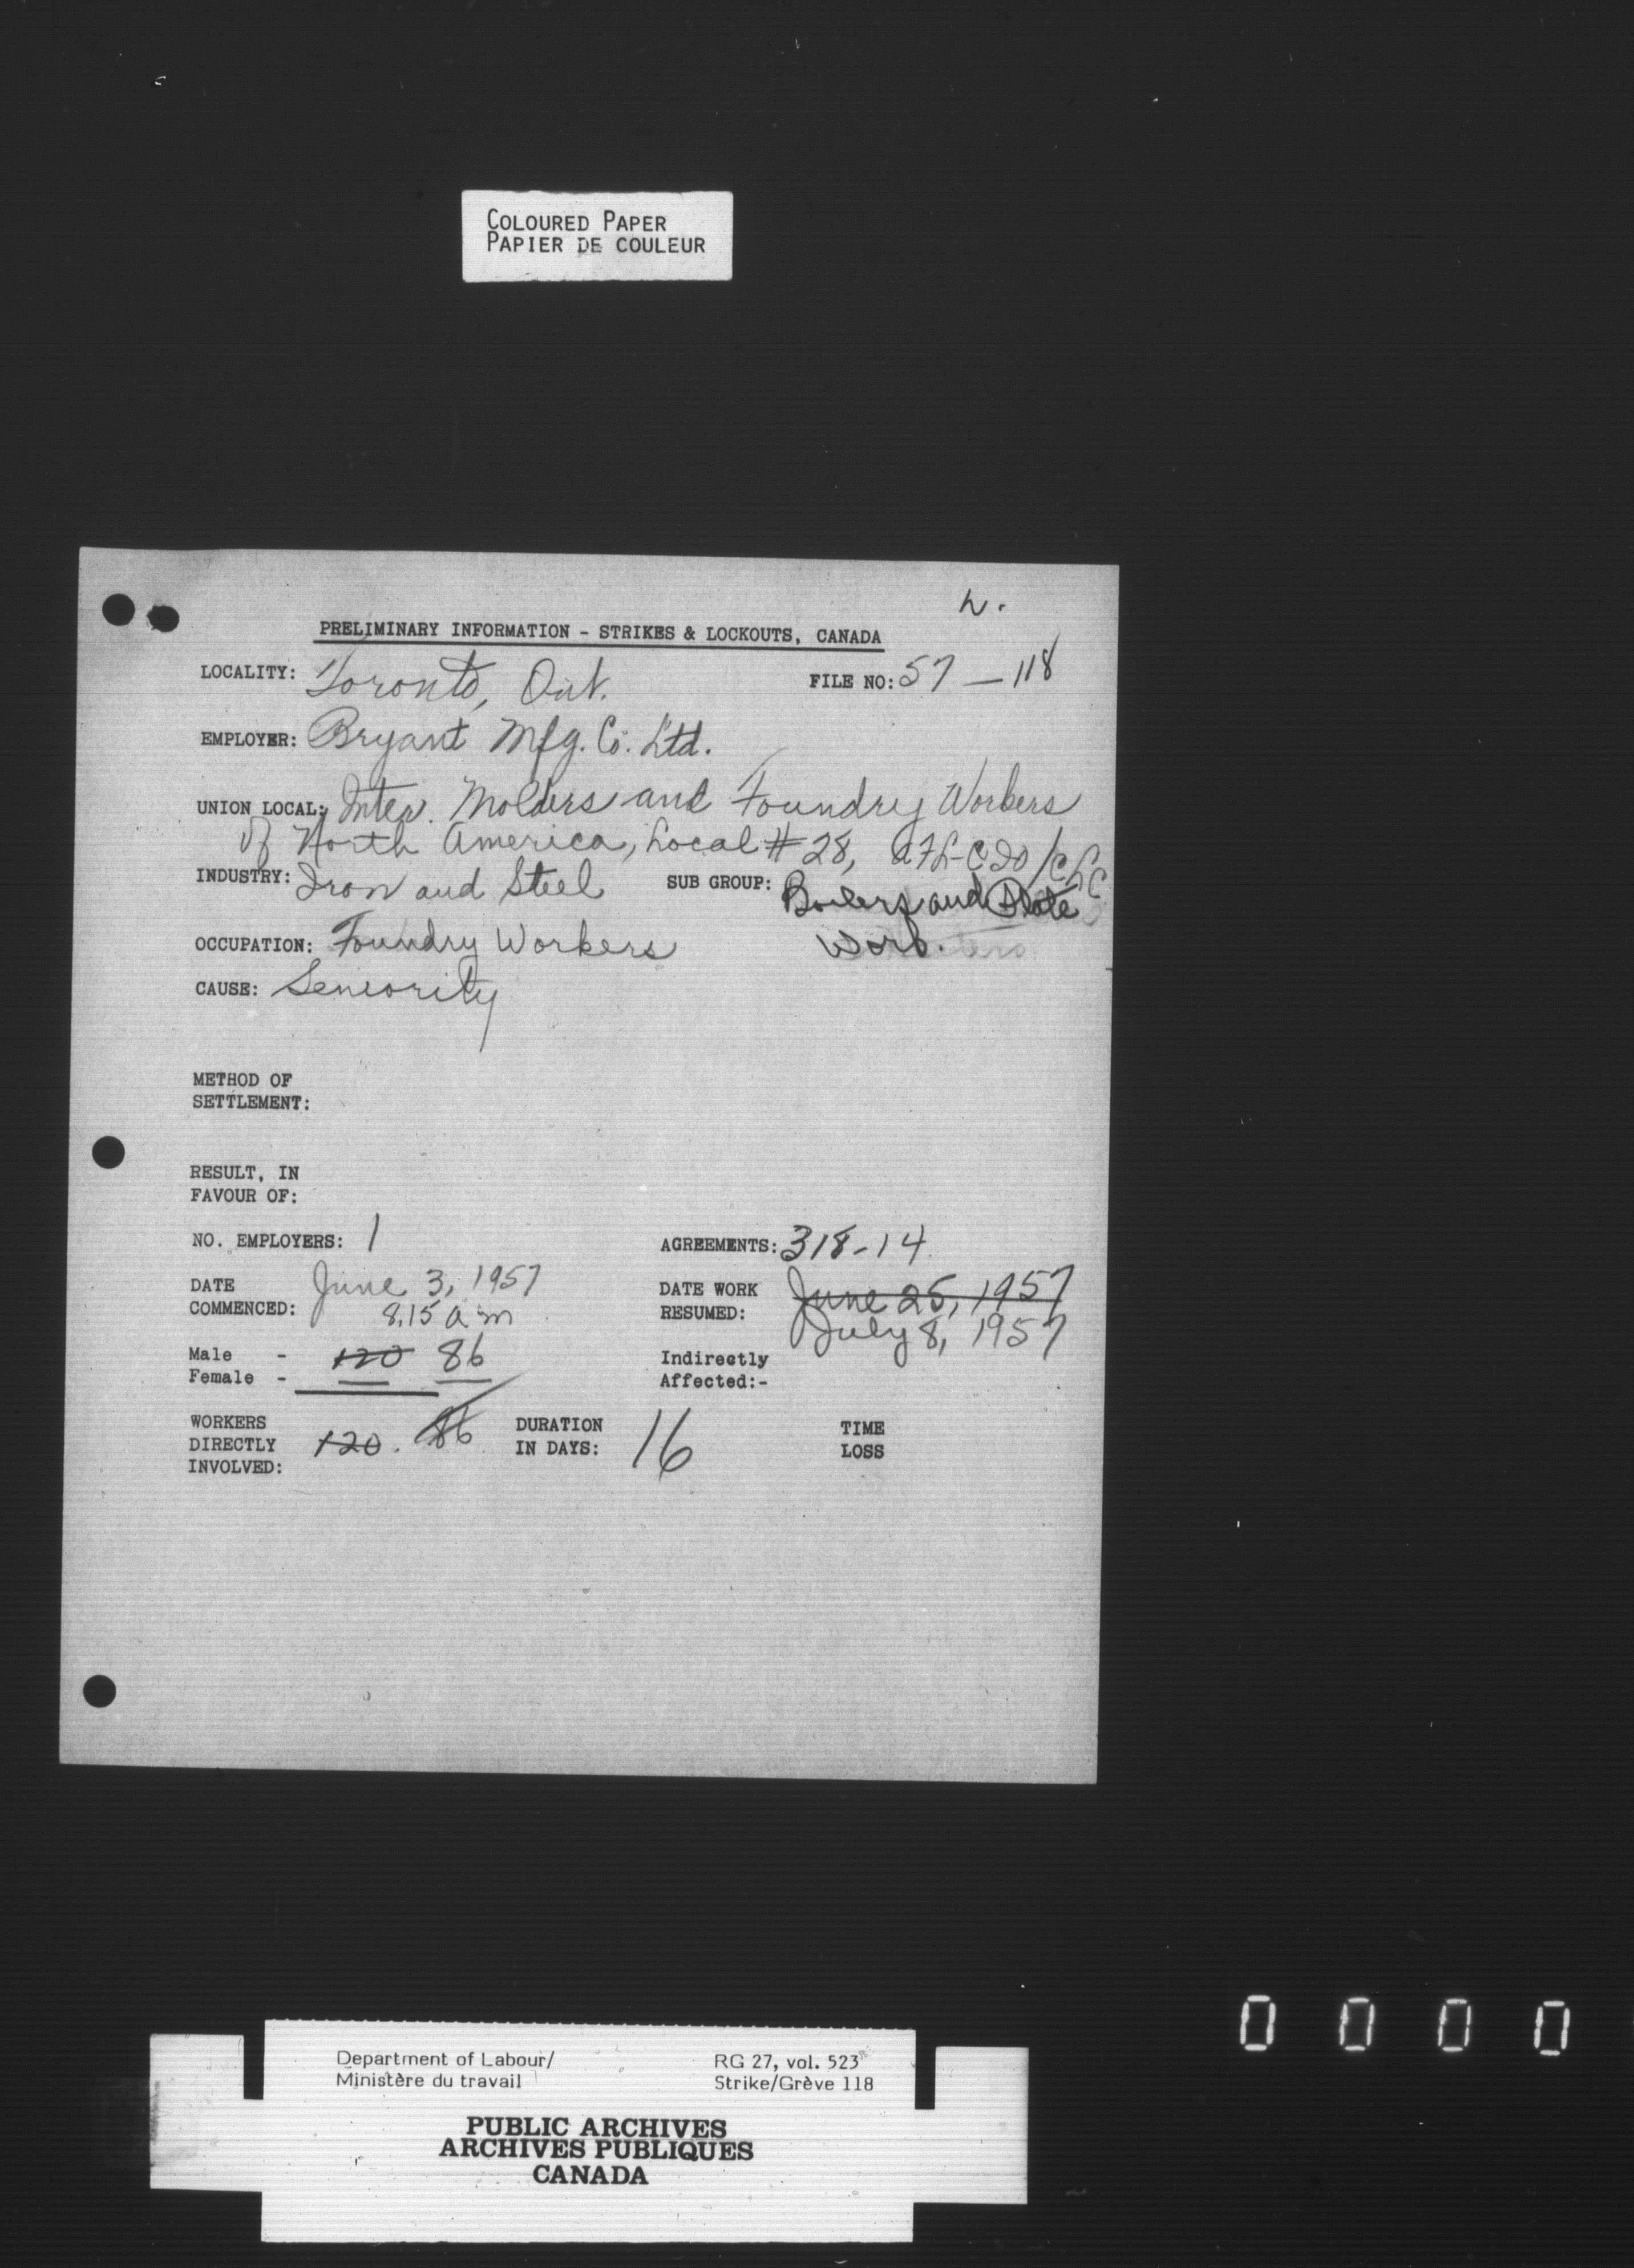 COLOURED PAPER
PAPIER DE COULEUR
h.
PRELIMINARY INFORMATION - STRIKES & LOCKOUTS, CANADA
LOCALITY: Toronto, Ont. FILE NO: 57 - 118
EMPLOYER: Bryant Mfg. Co. Ltd.
UNION LOCAL: Inter. Molders and Foundry Workers
of North America, Local # 28, AFL-CIO/CLC
INDUSTRY: Iron and Steel SUB GROUP: Boilers and Plate
Work.
OCCUPATION: Foundry Workers
CAUSE: Seniority
METHOD OF
SETTLEMENT:
RESULT, IN
FAVOUR OF:
NO. EMPLOYERS: 1 AGREEMENTS: 318-14
DATE COMMENCED: June 3, 1957 DATE WORK RESUMED: June 25, 1957
8.15 am July 8, 1957
Male - 120 86 Indirectly
Female - Affected:-
WORKERS DIRECTLY INVOLVED: 120. 86 DURATION IN DAYS: 16 TIME LOSS
0 0 0 0
Department of Labour/ RG 27, vol. 523
Ministère du travail Strike/Grève 118
PUBLIC ARCHIVES
ARCHIVES PUBLIQUES
CANADA